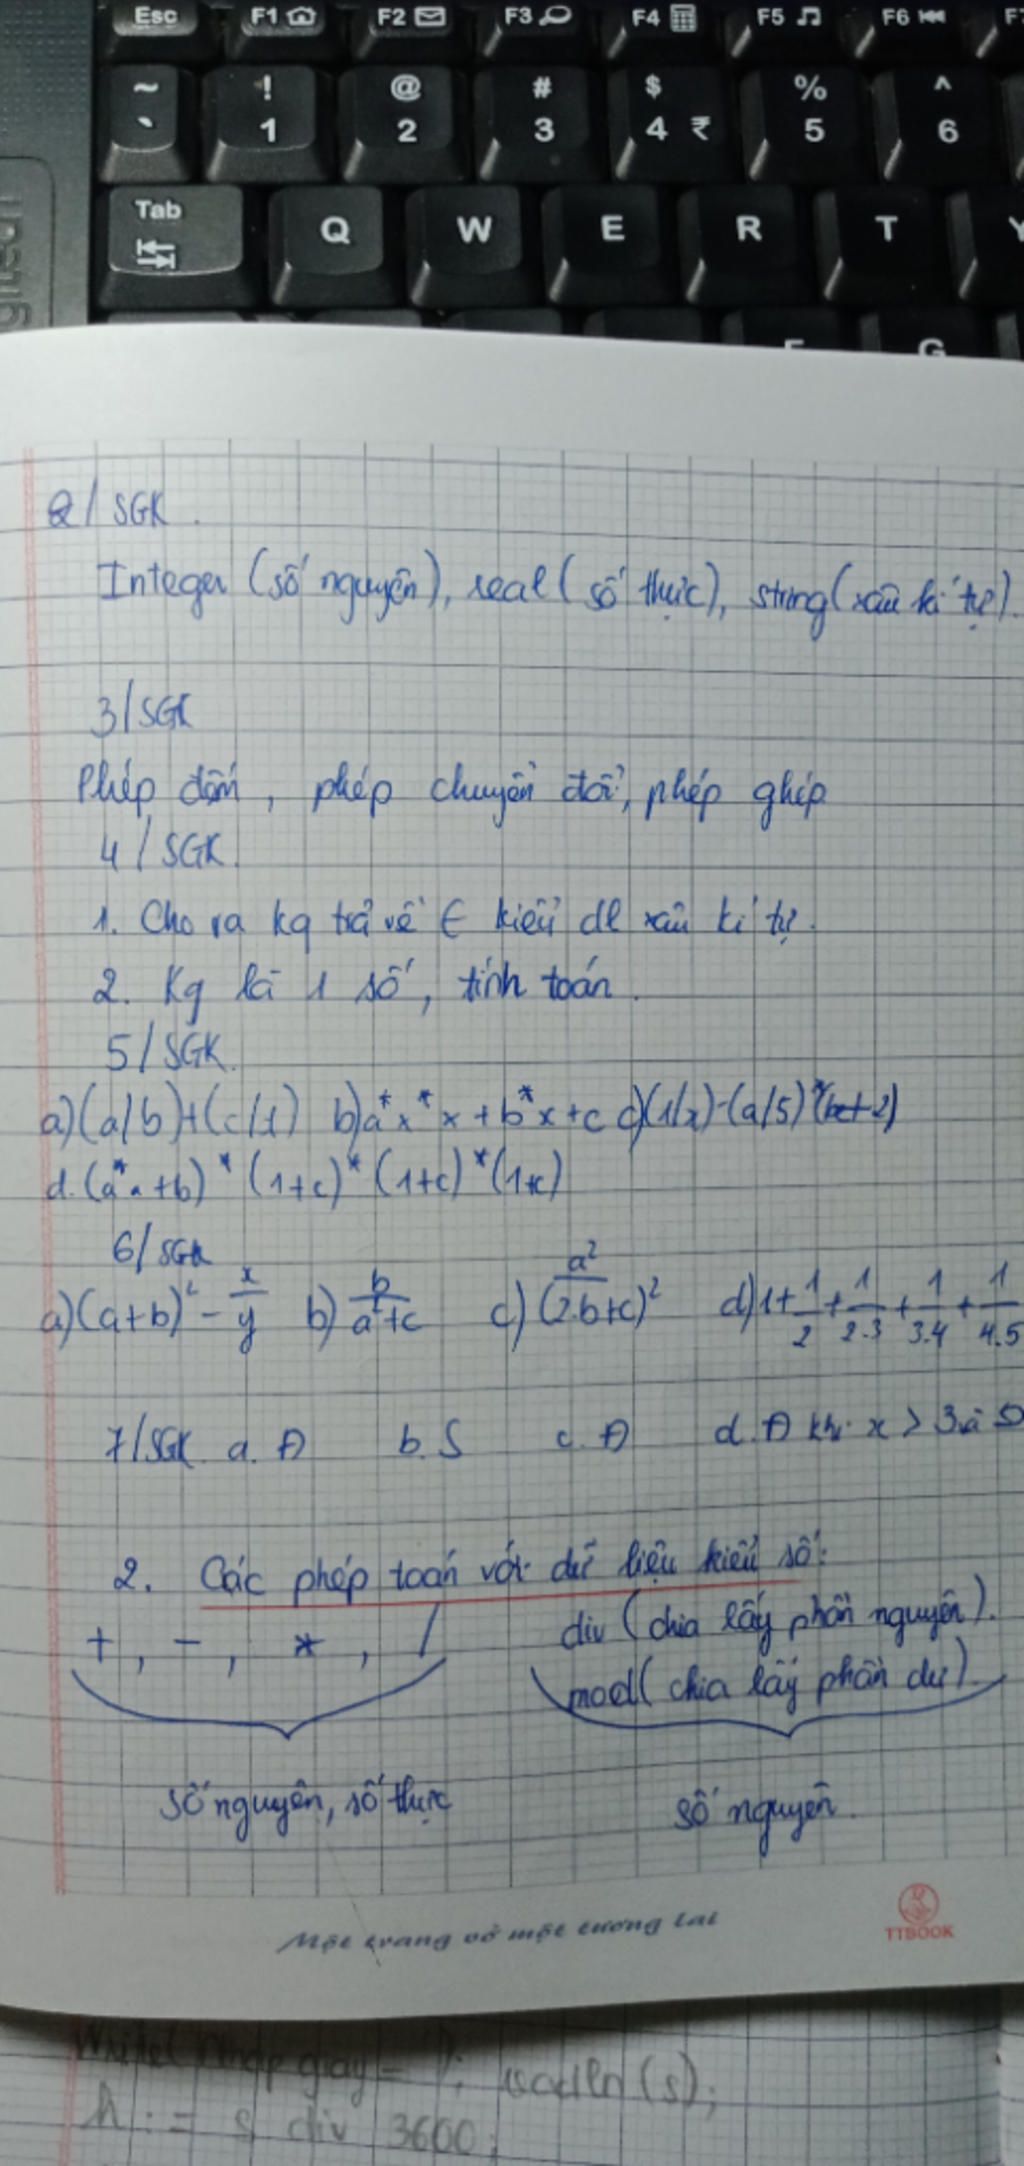 Esc F1 F2 F3 F4 F5 F6
~ ! @ # $ % ^
` 1 2 3 4 ₹ 5 6
Tab Q W E R T Y
F G
2/ SGK.
Integer (số nguyên), real (số thực), string (xâu kí tự).
3/ SGK
Phép , phép chuyển đổi, phép ghép
4/ SGK.
1. Cho ra kq trả về ∈ kiểu dl xâu kí tự.
2. Kq là 1 số, tính toán.
5/ SGK.
a) (a/b)+(c/1) b) a*x*x+b*x+c c) (1/x)-(a/5)*(b+2)
d. (a*a+b)*(1+c)*(1+c)*(1+c)
6/ SGK
a) (a+b)² - x/y b) b/(a²+c) c) a²/(2.b+c)² d) 1+1/2+1/2.3+1/3.4+1/4.5
7/ SGK a. Đ b. S c. Đ d. Đ khi x > 3 và S
2. Các phép toán với dữ liệu kiểu số:
+, -, *, / div (chia lấy phần nguyên).
mod (chia lấy phần dư).
số nguyên, số thực số nguyên.
Một trang vở một tương lai
TTBOOK
Write( giay = '); readln(s);
h := s div 3600;